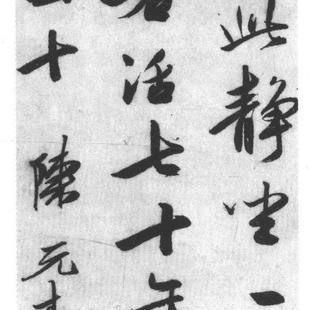 此静坐一
活七十年
十陳元